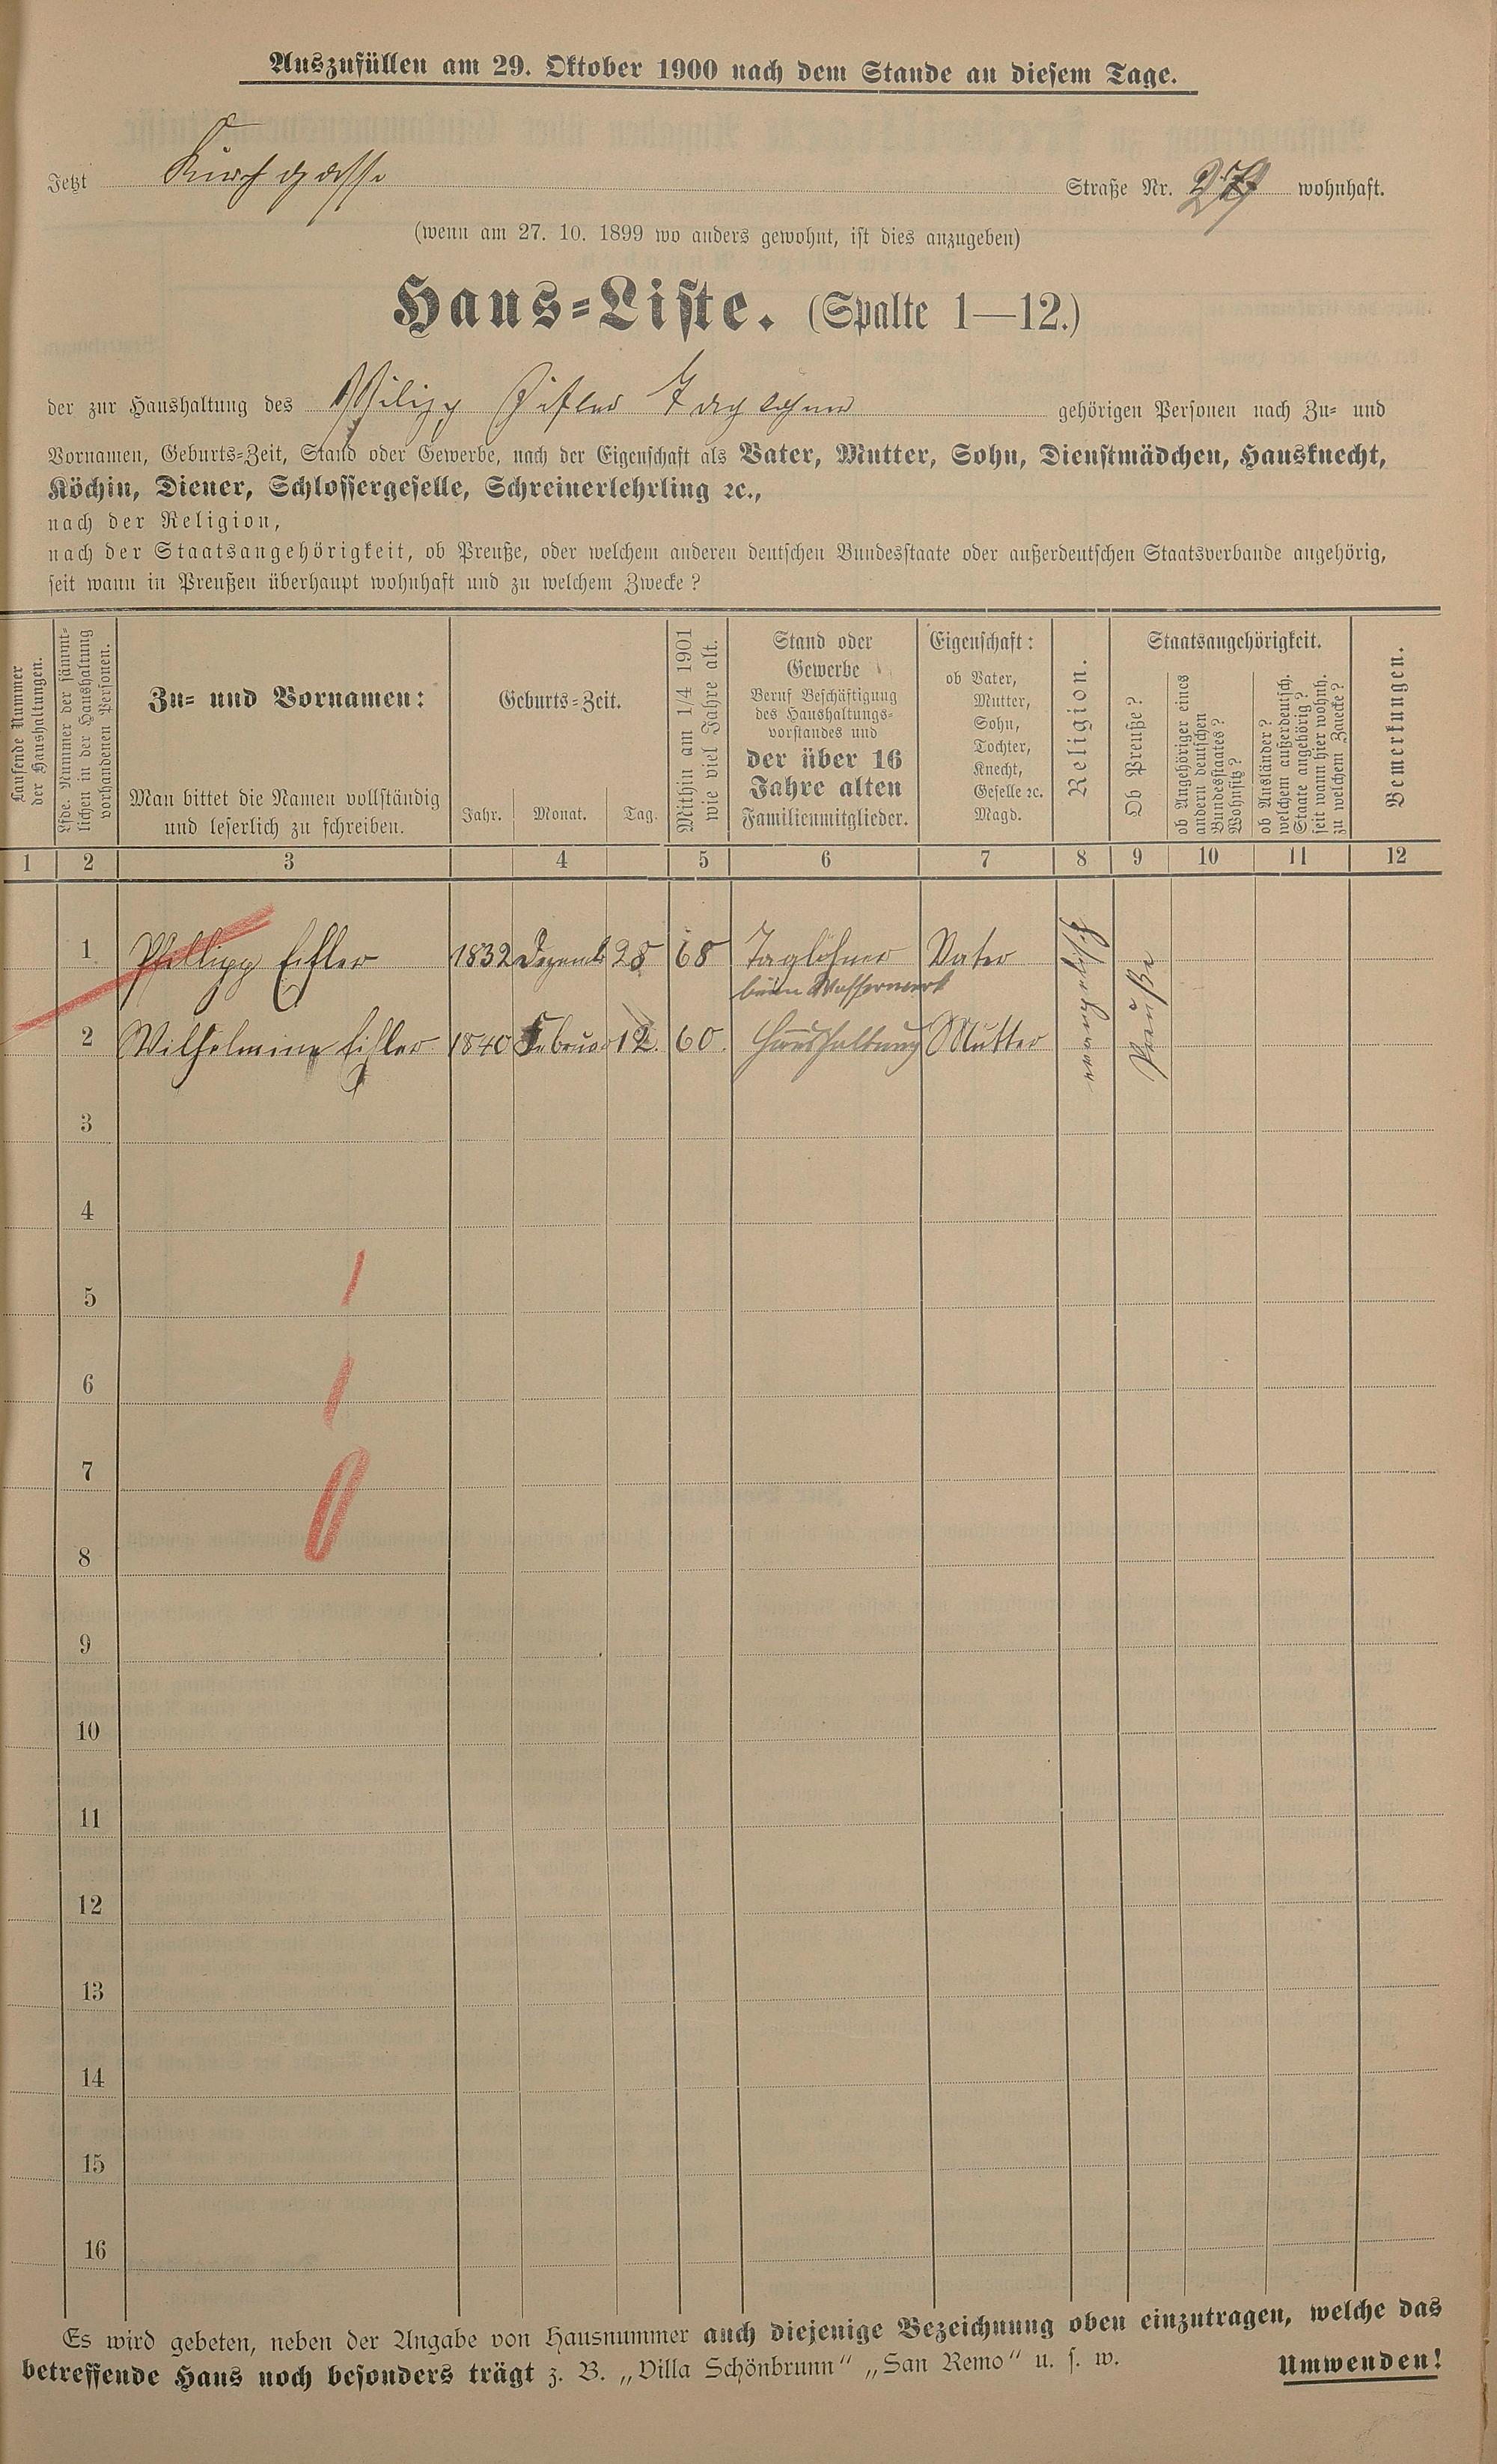 Auszufüllen am 29. Oktober 1900 nach dem Stande an diesem Tage.
Jetzt Kirchgasse Straße Nr. wohnhaft.
(wenn am 27. 10. 1899 wo anders gewohnt, ist dies anzugeben)
Haus-Liste. (Spalte 1—12.)
der zur Haushaltung des Philipp Eifler Taglöhner gehörigen Personen nach Zu- und
Vornamen, Geburts-Zeit, Stand oder Gewerbe, nach der Eigenschaft als Vater, Mutter, Sohn, Dienstmädchen, Hausknecht,
Köchin, Diener, Schlossergeselle, Schreinerlehrling ꝛc.,
nach der Religion,
nach der Staatsangehörigkeit, ob Preuße, oder welchem anderen deutschen Bundesstaate oder außerdeutschen Staatsverbande angehörig,
seit wann in Preußen überhaupt wohnhaft und zu welchem Zwecke?
Laufende Nummer
der Haushaltungen.
Lfde. Nummer der sämmt-
lichen in der Haushaltung
vorhandenen Personen.
Zu- und Vornamen:
Man bittet die Namen vollständig
und leserlich zu schreiben.
Geburts-Zeit.
Jahr. Monat. Tag.
Mithin am 1/4 1901
wie viel Jahre alt.
Stand oder
Gewerbe
Beruf Beschäftigung
des Haushaltungs-
vorstandes und
der über 16
Jahre alten
Familienmitglieder.
Eigenschaft:
ob Vater,
Mutter,
Sohn,
Tochter,
Knecht,
Geselle ꝛc.
Magd.
Religion.
Staatsangehörigkeit.
Ob Preuße?
ob Angehöriger eines
andern deutschen
Bundesstaates?
Wohnsitz?
ob Ausländer?
welchem außerdeutsch.
Staate angehörig?
seit wann hier wohnh.
zu welchem Zwecke?
Bemerkungen.
1 2 3 4 5 6 7 8 9 10 11 12
1 Phillipp Eifler 1832 Dezemb 28 68 Taglöhner Vater
beim Wasserwerk
2 Wilhelmine Eifler 1840 Februar 12. 60. Haushaltung Mutter
Preuße
3
4
5
6
7
8
9
10
11
12
13
14
15
16
Es wird gebeten, neben der Angabe von Hausnummer auch diejenige Bezeichnung oben einzutragen, welche das
betreffende Haus noch besonders trägt z. B. „Villa Schönbrunn“ „San Remo“ u. s. w. Umwenden!